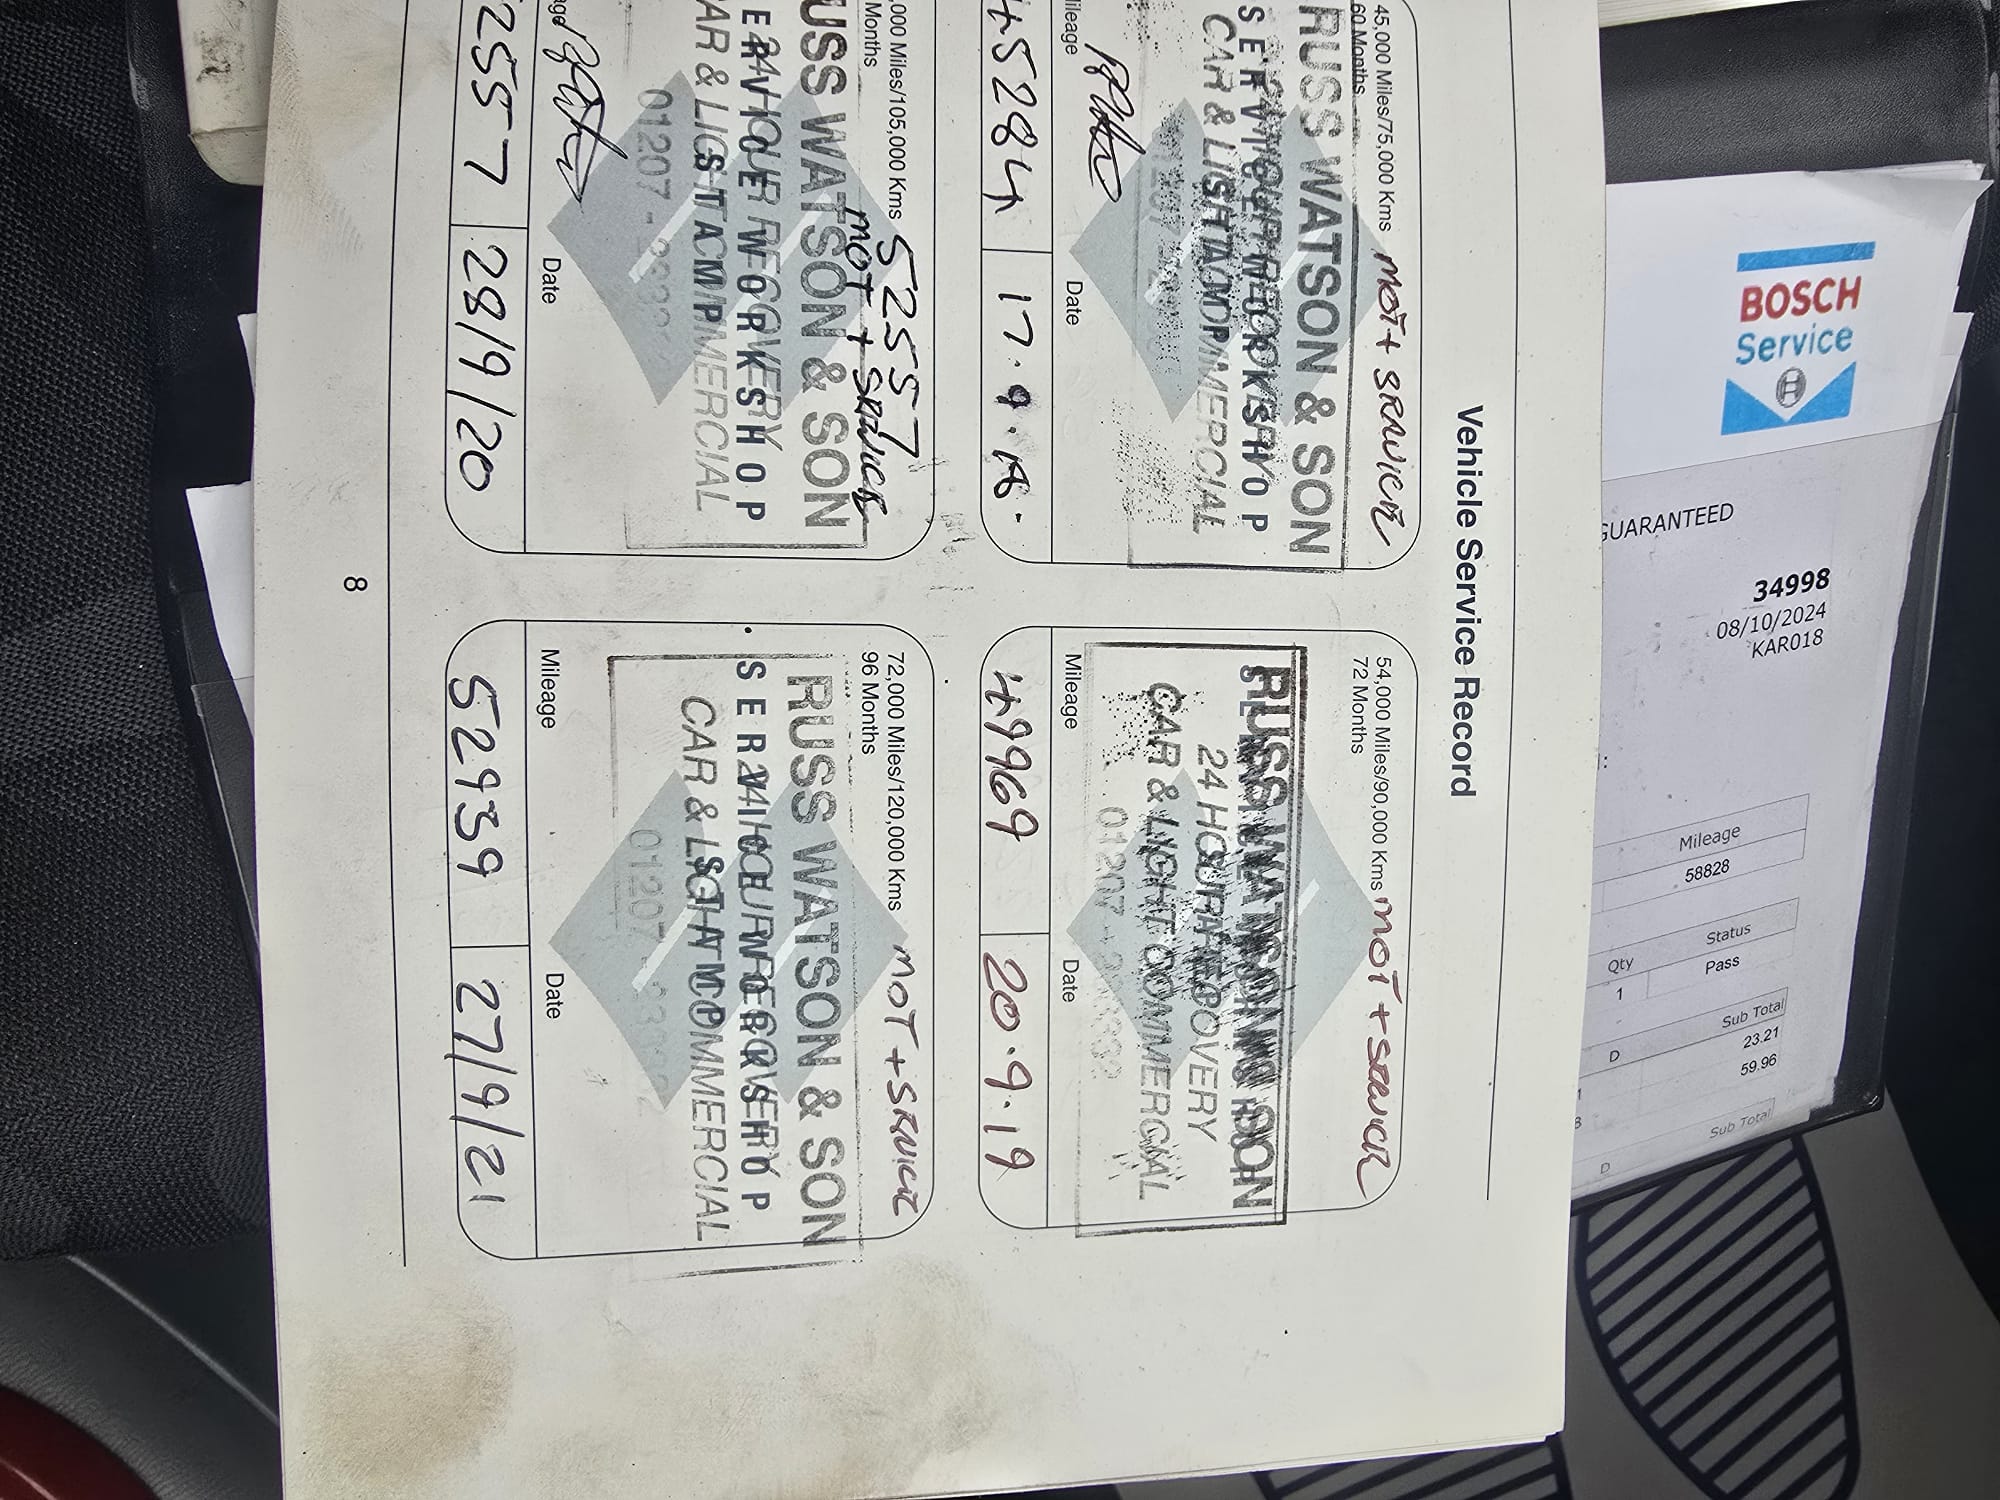 Vehicle Service Record
45,000 Miles/75,000 Kms MOT + SERVICE
60 Months
RUSS WATSON & SON
SERVICE WORKSHOP
CAR & LIGHT COMMERCIAL
STAMP
Mileage
Date
45284
17.9.18.
54,000 Miles/90,000 Kms MOT + SERVICE
72 Months
RUSS WATSON & SON
24 HOUR RECOVERY
CAR & LIGHT COMMERCIAL
01207
Mileage
Date
49969
20.9.19
,000 Miles/105,000 Kms 52557
Months
MOT + SERVICE
USS WATSON & SON
24 HOUR RECOVERY
ERVICE WORKSHOP
CAR & LIGHT COMMERCIAL
STAMP
01207
age
Date
52557
28/9/20
72,000 Miles/120,000 Kms MOT + SERVICE
96 Months
RUSS WATSON & SON
24 HOUR RECOVERY
SERVICE WORKSHOP
CAR & LIGHT COMMERCIAL
STAMP
01207
Mileage
Date
52939
27/9/21
8
BOSCH
Service
GUARANTEED
34998
08/10/2024
KAR018
Mileage
58828
Status
Qty
Pass
1
Sub Total
D
23.21
59.96
Sub Total
D